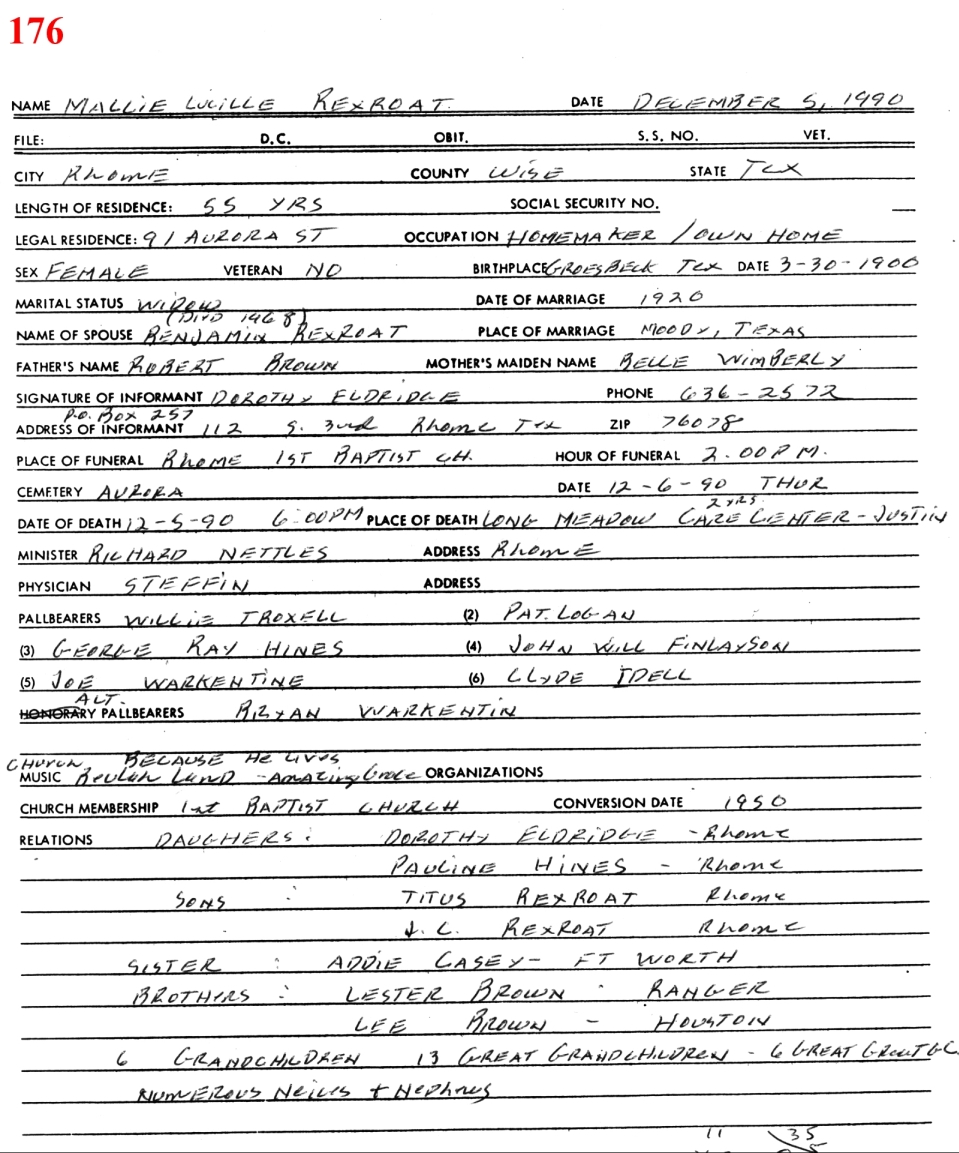 176
NAME MALLIE LUCILLE REXROAT DATE DECEMBER 5, 1990
FILE: D.C. OBIT. S.S. NO. VET.
CITY RhomE COUNTY WiSE STATE TEX
LENGTH OF RESIDENCE: 55 YRS SOCIAL SECURITY NO.
LEGAL RESIDENCE: 91 AURORA ST OCCUPATION HOMEMAKER / OWN HOME
SEX FEMALE VETERAN NO BIRTHPLACE GROESBECK TEX DATE 3-30-1900
MARITAL STATUS WIDOW DATE OF MARRIAGE 1920
(DIED 1968)
NAME OF SPOUSE BENJAMIN REXROAT PLACE OF MARRIAGE MOODY, TEXAS
FATHER'S NAME ROBERT BROWN MOTHER'S MAIDEN NAME BELLE WIMBERLY
SIGNATURE OF INFORMANT DOROTHY ELDRIDGE PHONE 636-2572
P.O. BOX 257
ADDRESS OF INFORMANT 112 S. 3rd Rhome Tex ZIP 76078
PLACE OF FUNERAL RHOME 1ST BAPTIST CH. HOUR OF FUNERAL 2:00 P.M.
CEMETERY AURORA DATE 12-6-90 THUR
2 YRS.
DATE OF DEATH 12-5-90 6:00PM PLACE OF DEATH LONG MEADOW CARE CENTER - JUSTIN
MINISTER RICHARD NETTLES ADDRESS RhomE
PHYSICIAN STEFFIN ADDRESS
PALLBEARERS WILLIE TROXELL (2) PAT LOGAN
(3) GEORGE RAY HINES (4) JOHN WILL FINLAYSON
(5) JOE WARKENTINE (6) CLYDE IDELL
ALT.
HONORARY PALLBEARERS BRYAN WARKENTIN
CHURCH BECAUSE He LIVES
MUSIC Beulah LAND - Amazing Grace ORGANIZATIONS
CHURCH MEMBERSHIP 1st BAPTIST CHURCH CONVERSION DATE 1950
RELATIONS DAUGHERS: DOROTHY ELDRIDGE - Rhome
PAULINE HINES - Rhome
SONS : TITUS REXROAT Rhome
J. C. REXROAT Rhome
SISTER : ADDIE CASEY - FT WORTH
BROTHERS : LESTER BROWN - RANGER
LEE BROWN - HOUSTON
6 GRANDCHILDREN 13 GREAT GRANDCHILDREN - 6 GREAT GREAT G.C.
NUMEROUS Neices + Nephews
11 35